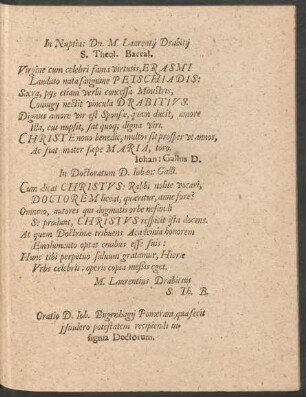 In Nuptias Dn. M. Laurentij Drabitij
S. Theol. Baccal.
Virgine cum celebri fama virtutis, ERASMI
Laudato nata sanguine PETSCHIADIS:
Sacra, pijs etiam verbi concessa Ministris,
Coniugij nectit vincula DRABITIVS.
Dignus amore vir est Sponsæ, quam ducit, amore
Illa, cui nupsit, sat quoque digna viri.
CHRISTE nouo benedic, multos sit prosper ut annos,
Ac fiat mater sæpe MARIA, toro.
Iohan: Gallus D.
In Doctoratum D. Iohan: Galli.
Cum dicat CHRISTVS: Rabbi nolite vocari,
DOCTOREM liceat, quæretur, anne fore?
Omnino, autores qui dogmatis orbe nefandi
Se produnt, CHRISTVS respicit ista docens.
At quem Doctrinæ tribuens Academia honorem
Emolumento optat ciuibus esse suis:
Hunc tibi perpetuo saluum gratamur, Hieræ
Vrbs celebris: operis copia messis eget.
M. Laurentius Drabitius
S. Th. B.
Oratio D. Ioh. Bugenhagij Pomerani, qua fecit
potestatem recipiendi in-
signia Doctorum.